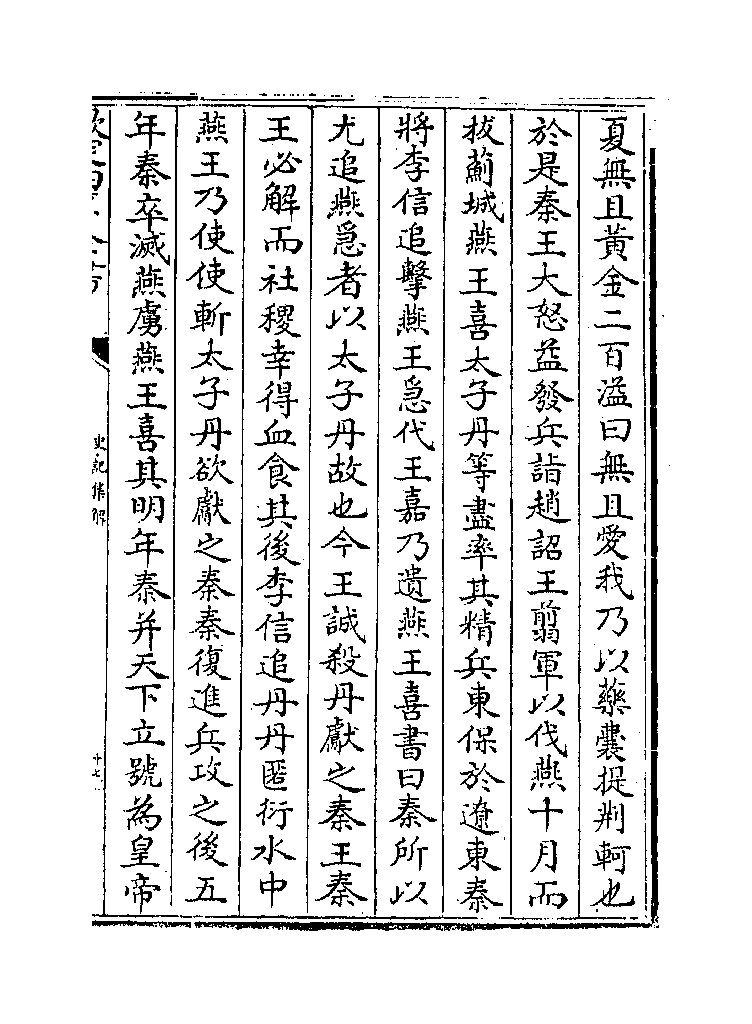 夏無且黃金二百溢曰無且愛我乃以藥囊提荆軻也
於是秦王大怒益發兵詣趙詔王翦軍以伐燕十月而
拔薊城燕王喜太子丹等盡率其精兵東保於遼東秦
將李信追擊燕王急代王嘉乃遺燕王喜書曰秦所以
尤追燕急者以太子丹故也今王誠殺丹獻之秦王秦
王必解而社稷幸得血食其後李信追丹丹匿衍水中
燕王乃使使斬太子丹欲獻之秦秦復進兵攻之後五
年秦卒滅燕虜燕王喜其明年秦并天下立號為皇帝
史記集解